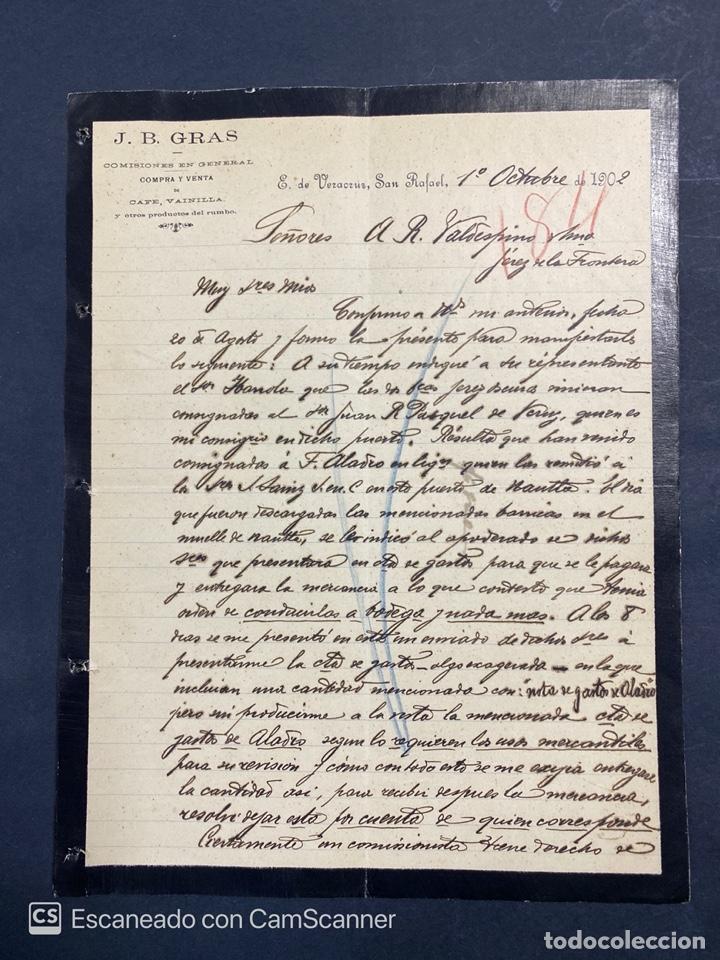 J. B. GRAS
COMISIONES EN GENERAL
COMPRA Y VENTA
DE
CAFE, VAINILLA
y otros productos del rumbo.
E. de Veracruz, San Rafael, 1º Octubre de 1902
Señores A R. Valdespino y Hno
Jerez de la Frontera
Muy Sres Mios
Confirmo a Vds mi anterior, fecha
20 de Agosto y formo la présente para manifestarles
lo siguiente: A su tiempo indiqué a su représentante
el Sor que las dos Bcas Jerez vinieran
consignadas al Sor Juan R Pasquel de Veruz, quien es
mi consigrio en dicho puerto. Résulta que han venido
consignadas á F. Aladro en liqn quien las remitió á
la Sra J. Sainz S. en C en este puerto de Nautla. El dia
que fueron descargadas las mencionadas barricas en el
muelle de Nautla, se les indicó al apoderado de dichos
Sres que presentara su cta de gastos para que se le pagara
y entregara la mercancia a lo que contestó que tenia
orden de conducirlas a bodega y nada mas. A los 8
dias se me presentó en esta un enviado de dichos Sres á
presentarme la cta de gastos - algo exagerada - en la que
incluian una cantidad mencionada con: "nota de gastos de Aladro"
pero sin producirme a la vista la mencionada cta de
gastos de Aladro segun lo requieren los usos mercantiles
para su revisión y cómo con todo esto se me exijia entregara
la cantidad asi, para recibir despues la mercancia,
resolvi dejar esta por cuenta de quien corresponde
Ciertamente un comisionista tiene derecho de
184
CS Escaneado con CamScanner
todocoleccion